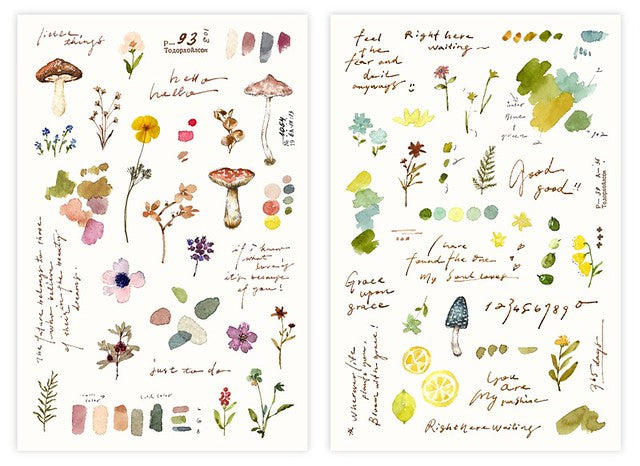 little things
P— 93
hello
hello
if i know
what
love is
it's because
of you!
The future belongs to those
who believe
in the beauty
of their
dreams.
just to do
feel
the
fear and
do it
anyways
Right here
waiting
Good
good!!
I have
found the one
My Soul loves
Grace
upon
grace
1234567890
Wherever life
plants you
Bloom with grace!
You
are
My
sunshine
365 days
Right here waiting